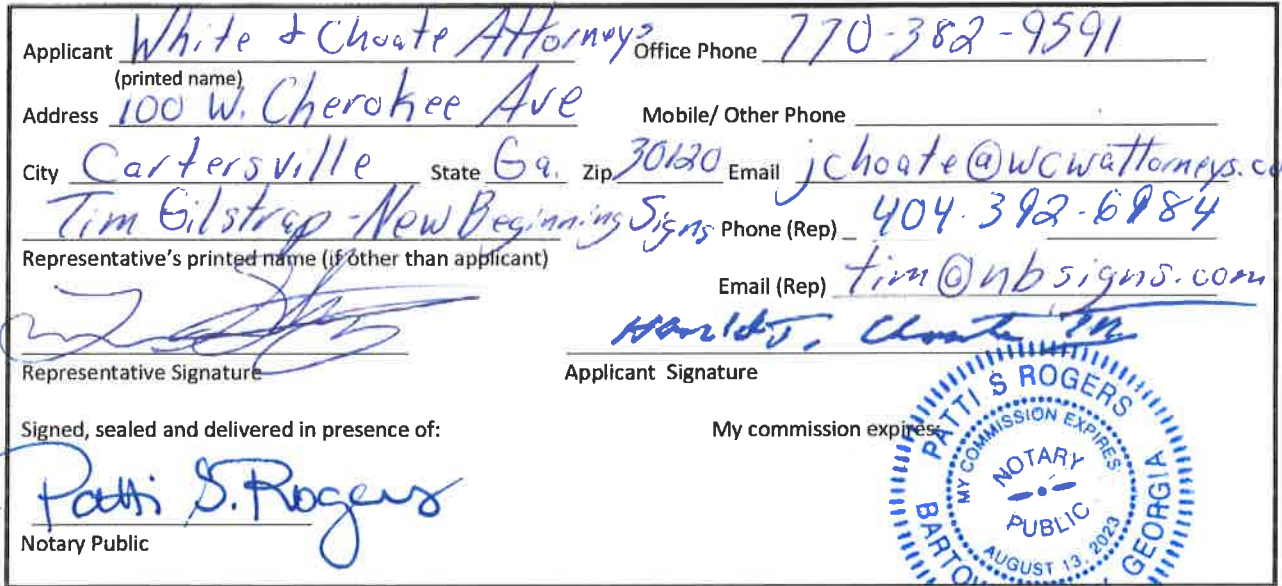 Applicant White & Choate Attorneys Office Phone 770-382-9591
(printed name)
Address 100 W. Cherokee Ave Mobile/ Other Phone
City Cartersville State Ga. Zip 30120 Email jchoate@wcwattorneys.co
Tim Gilstrap - New Beginning Signs Phone (Rep) 404-392-6984
Representative's printed name (if other than applicant)
Email (Rep) tim@nbsigns.com
Representative Signature Applicant Signature
Signed, sealed and delivered in presence of: My commission expires:
Patti S. Rogers
Notary Public
PATTI S ROGERS
MY COMMISSION EXPIRES
NOTARY
PUBLIC
AUGUST 13, 2023
BARTOW
GEORGIA